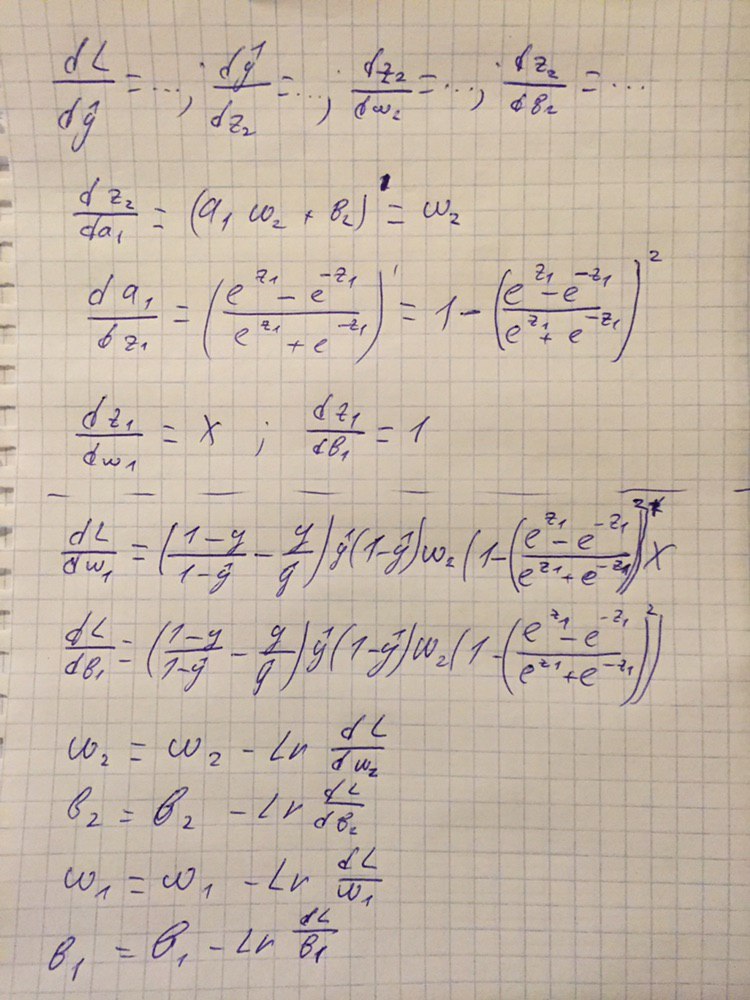 dL/dŷ = ...; dŷ/dz₂ = ...; dz₂/dw₂ = ...; dz₂/dв₂ = ...
dz₂/da₁ = (a₁ w₂ + в₂)' = w₂
da₁/dz₁ = ((e^z₁ - e^-z₁)/(e^z₁ + e^-z₁))' = 1 - ((e^z₁ - e^-z₁)/(e^z₁ + e^-z₁))²
dz₁/dw₁ = x ; dz₁/dв₁ = 1
dL/dw₁ = ((1-y)/(1-ŷ) - y/ŷ) ŷ(1-ŷ) w₂ (1-((e^z₁ - e^-z₁)/(e^z₁ + e^-z₁))²) * x
dL/dв₁ = ((1-y)/(1-ŷ) - y/ŷ) ŷ(1-ŷ) w₂ (1-((e^z₁ - e^-z₁)/(e^z₁ + e^-z₁))²)
w₂ = w₂ - Lr dL/dw₂
в₂ = в₂ - Lr dL/dв₂
w₁ = w₁ - Lr dL/w₁
в₁ = в₁ - Lr dL/в₁